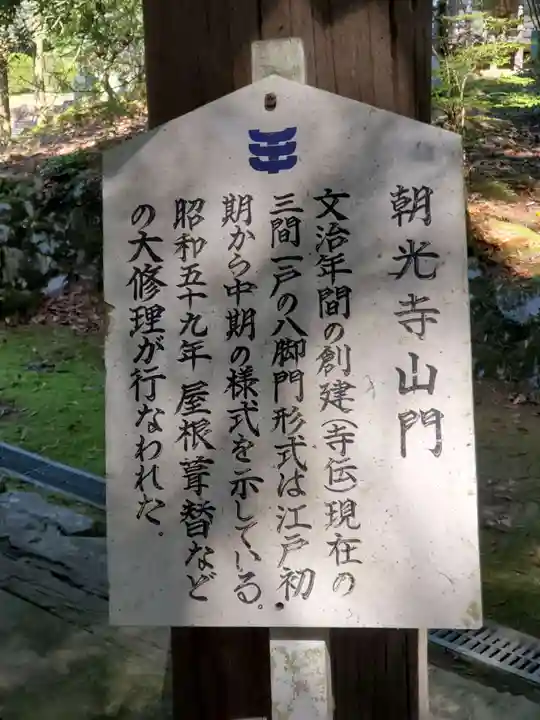 朝光寺山門
文治年間の創建(寺伝)現在の
三間一戸の八脚門形式は江戸初
期から中期の様式を示している。
昭和五十九年屋根葺替など
の大修理が行なわれた.